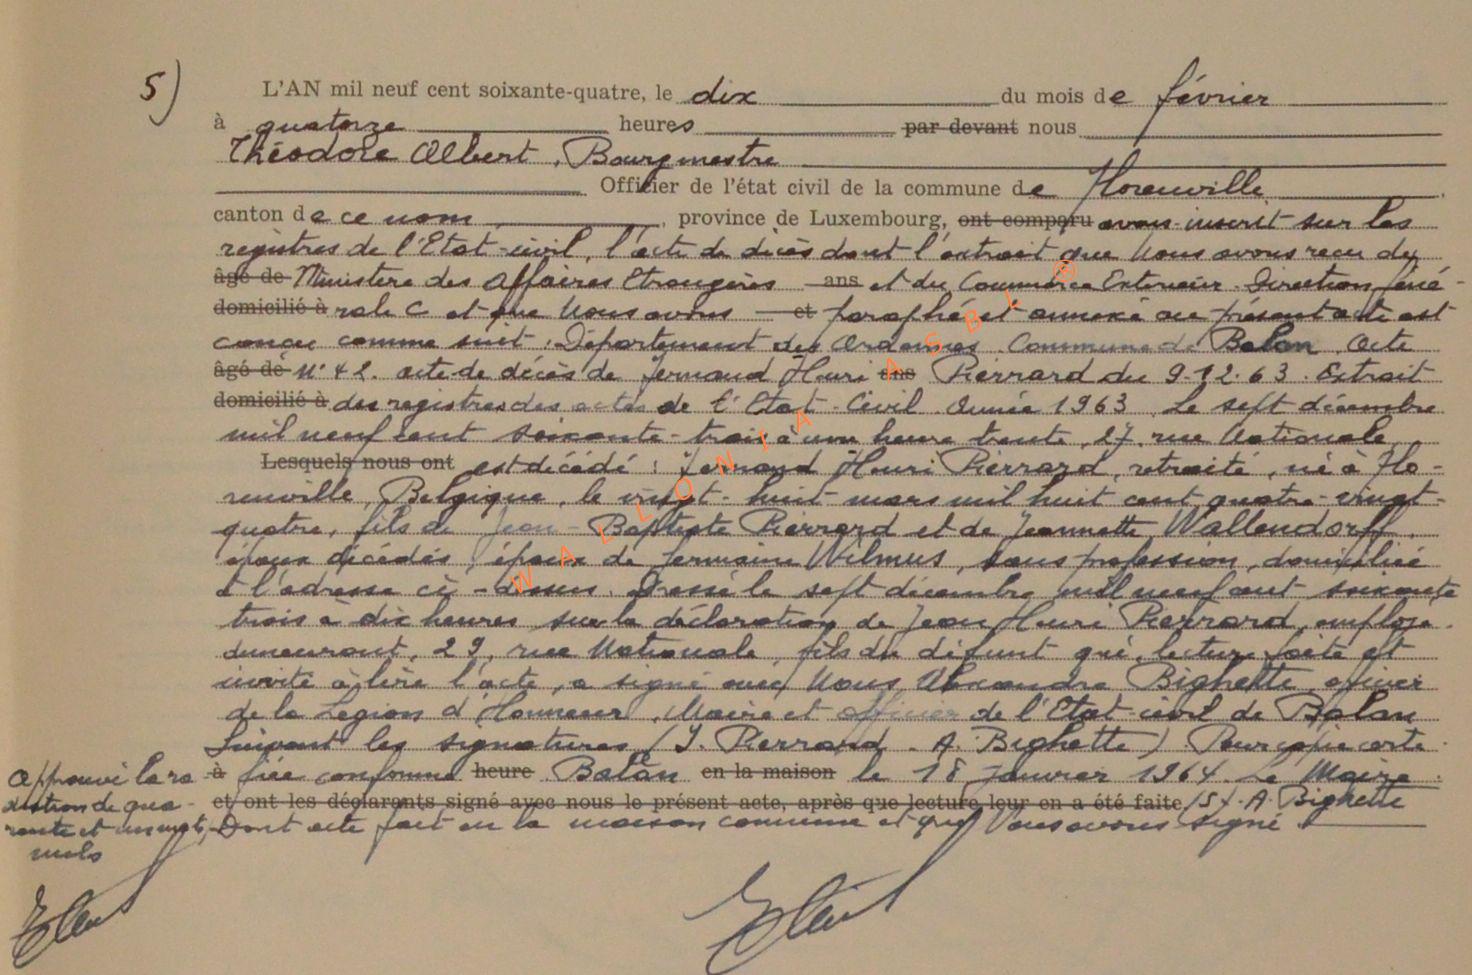 5)
L'AN mil neuf cent soixante-quatre, le dix du mois de février
à quatorze heures par devant nous
Théodore Albert, Bourgmestre
Officier de l'état civil de la commune de Florenville
canton de ce nom, province de Luxembourg, ont comparu avons inscrit sur les
registres de l'Etat-civil, l'acte de décès dont l'extrait que Nous avons recu du
âgé de Ministère des Affaires Etrangères ans et du Commerce Extérieur. Direction géné-
domicilié à rale C et que Nous avons et paraphé et annexé au présent acte est
concu comme suit. Département des Ardennes. Commune de Balan. Acte
âgé de N° 42. acte de décès de Fernand Henri ans Pierrard du 9-12-63. Extrait
domicilié à des registres des actes de l'Etat-Civil. Année 1963. Le sept décembre
mil neuf cent soixante-trois à une heure trente, 27, rue Nationale
Lesquels nous ont est décédé : Fernand Henri Pierrard, retraité, né à Flo-
renville, Belgique, le vingt-huit mars mil huit cent quatre-vingt-
quatre, fils de Jean-Baptiste Pierrard et de Jeannette Wallendorff,
époux décédés, époux de Germaine Wilmus, sans profession, domiciliée
à l'adresse ci-dessus. Dressé le sept décembre mil neuf cent soixante
trois à dix heures sur la déclaration de Jean Henri Pierrard, employé
demeurant, 29, rue Nationale, fils du défunt qui, lecture faite et
invité à lire l'acte, a signé avec Nous Alexandre Bighette officier
de la Légion d'Honneur, Maire et officier de l'Etat-civil de Balan
Suivant les signatures (J. Pierrard - A. Bighette) Pour copie certi-
à fiée conforme heure Balan en la maison le 18 Janvier 1964. Le Maire
et ont les déclarants signé avec nous le présent acte, après que lecture leur en a été faite (S). A. Bighette
Dont acte fait en la maison commune et que Nous avons signé.
Approuvé la ra
diation de qua-
rante et un mots
nuls
WALLONIA ASBL ®